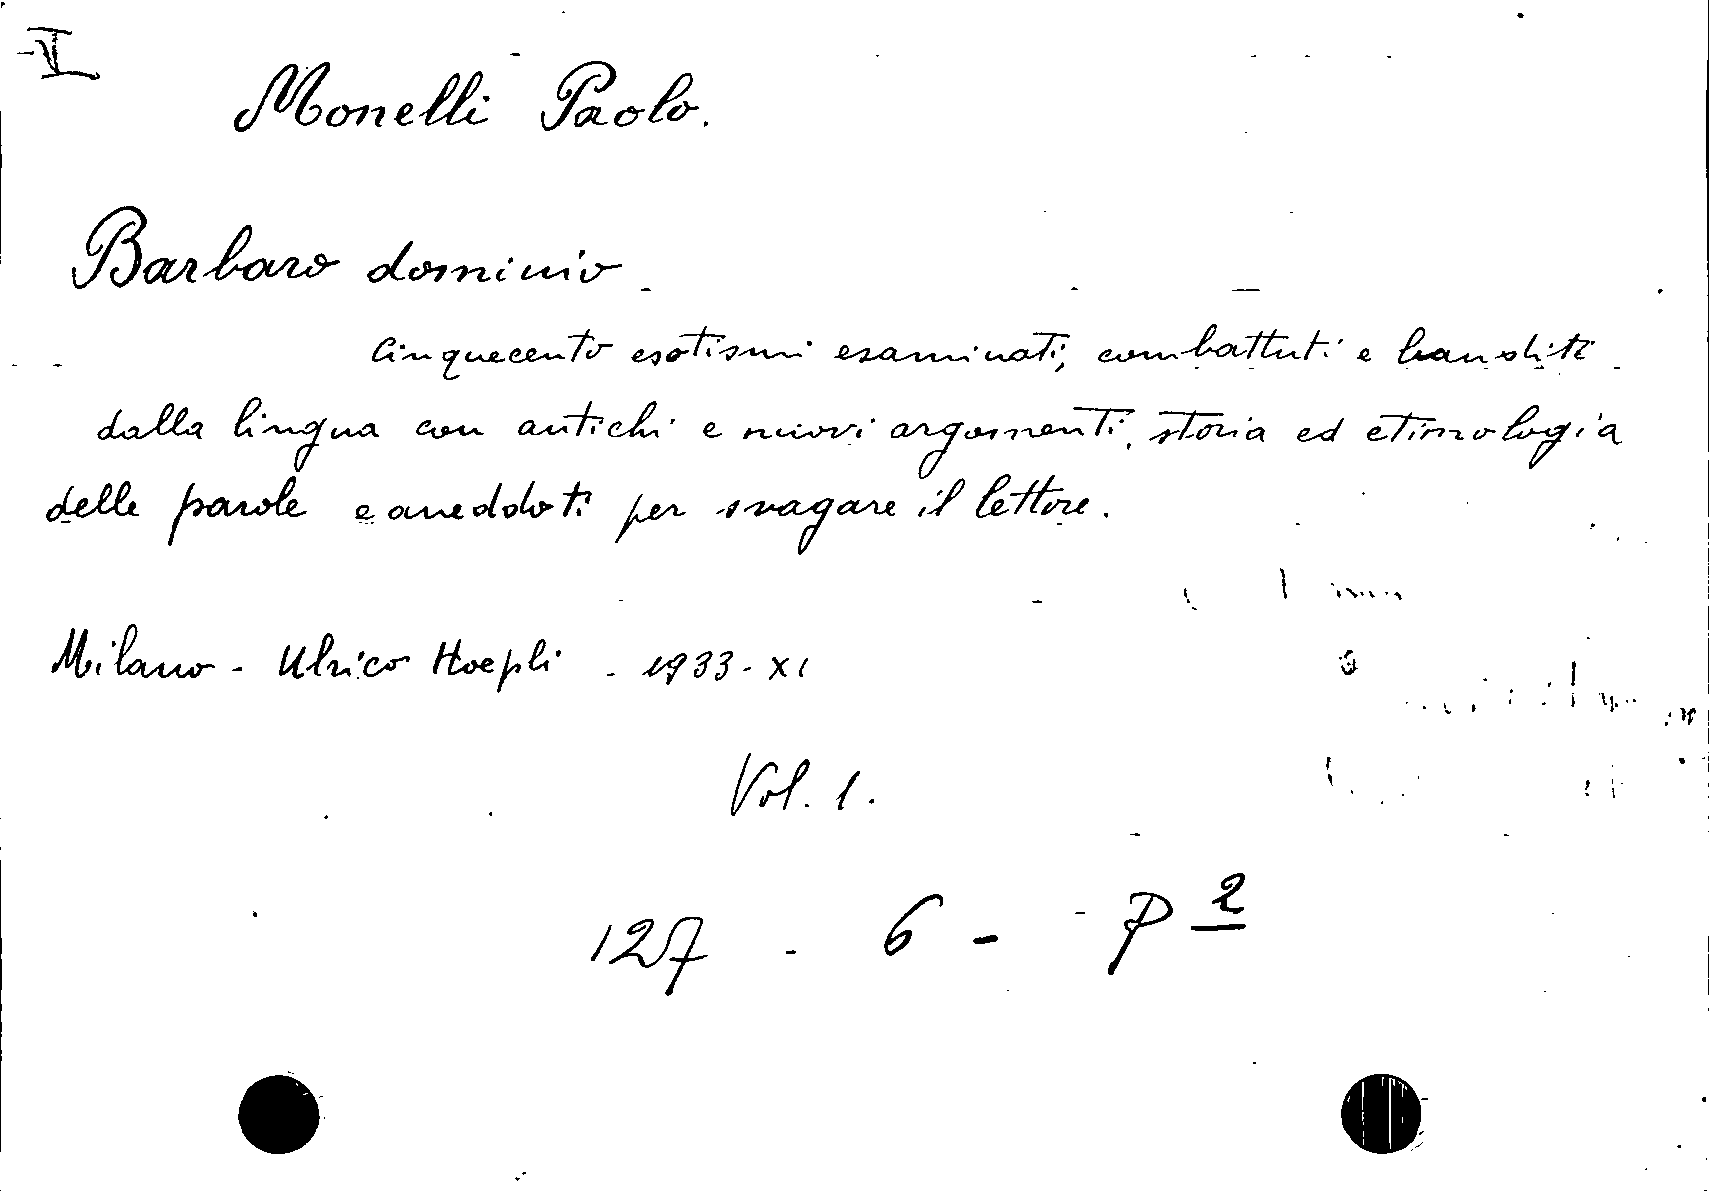 I
Monelli Paolo.
Barbaro dominio -
Cinquecento esotismi esaminati, combattuti e banditi
dalla lingua con antichi e nuovi argomenti, storia ed etimologia
delle parole e aneddoti per svagare il lettore.
Milano - Ulrico Hoepli - 1933 - XI
Vol. 1.
127 - 6 - P 2